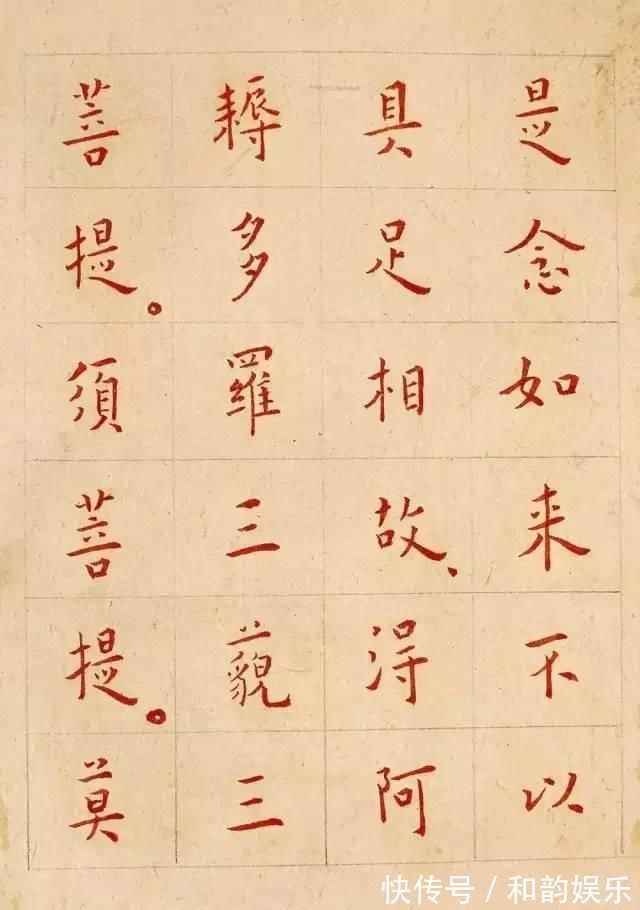 是念如来不以
具足相故、得阿
耨多羅三藐三
菩提。須菩提。莫
快传号/和韵娱乐